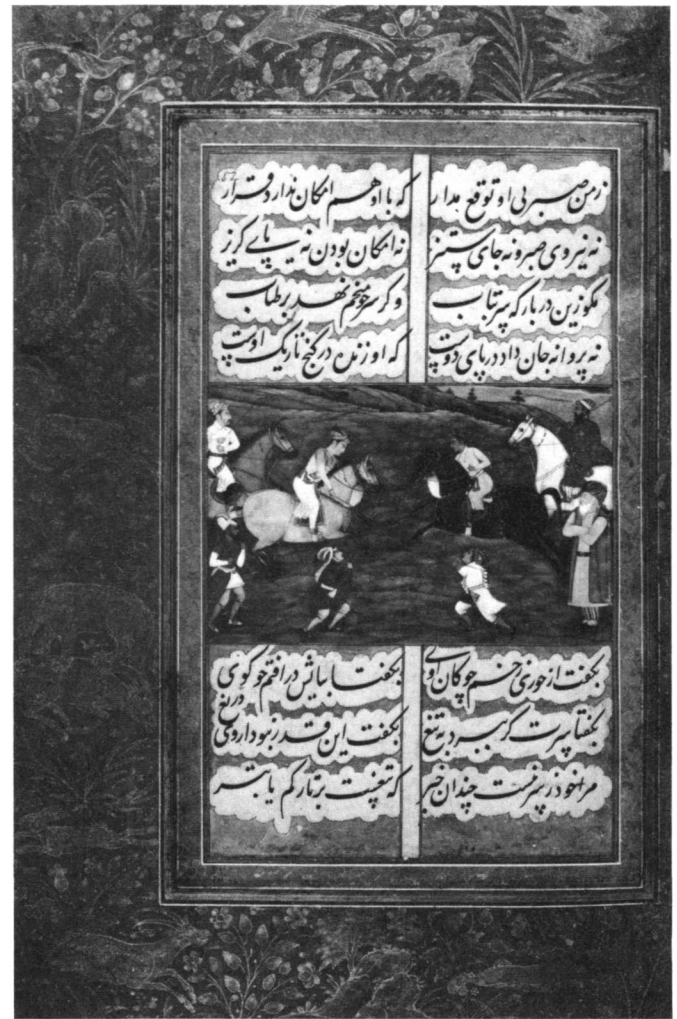 زمن صبر بی او توقع مدار که با او هم امکان ندارد قرار
نه نیروی صبر و نه جای ستیز نه امکان بودن نه پای کریز
مکو زین در بارکه سر بتاب و کر سر چو میخم نهد بر طناب
نه پروانه جان داد در پای دوست که او زنده در کنج تاریک اوست
بکفت ار خوری زخم چوکان اوی بکفتا بپایش در افتم چو کوی
بکفتا سرت کر ببرد به تیغ بکفت این قدر نبود از وی دریغ
مرا خود ز سر نیست چندان خبر که تیغست بر تارکم یا تبر